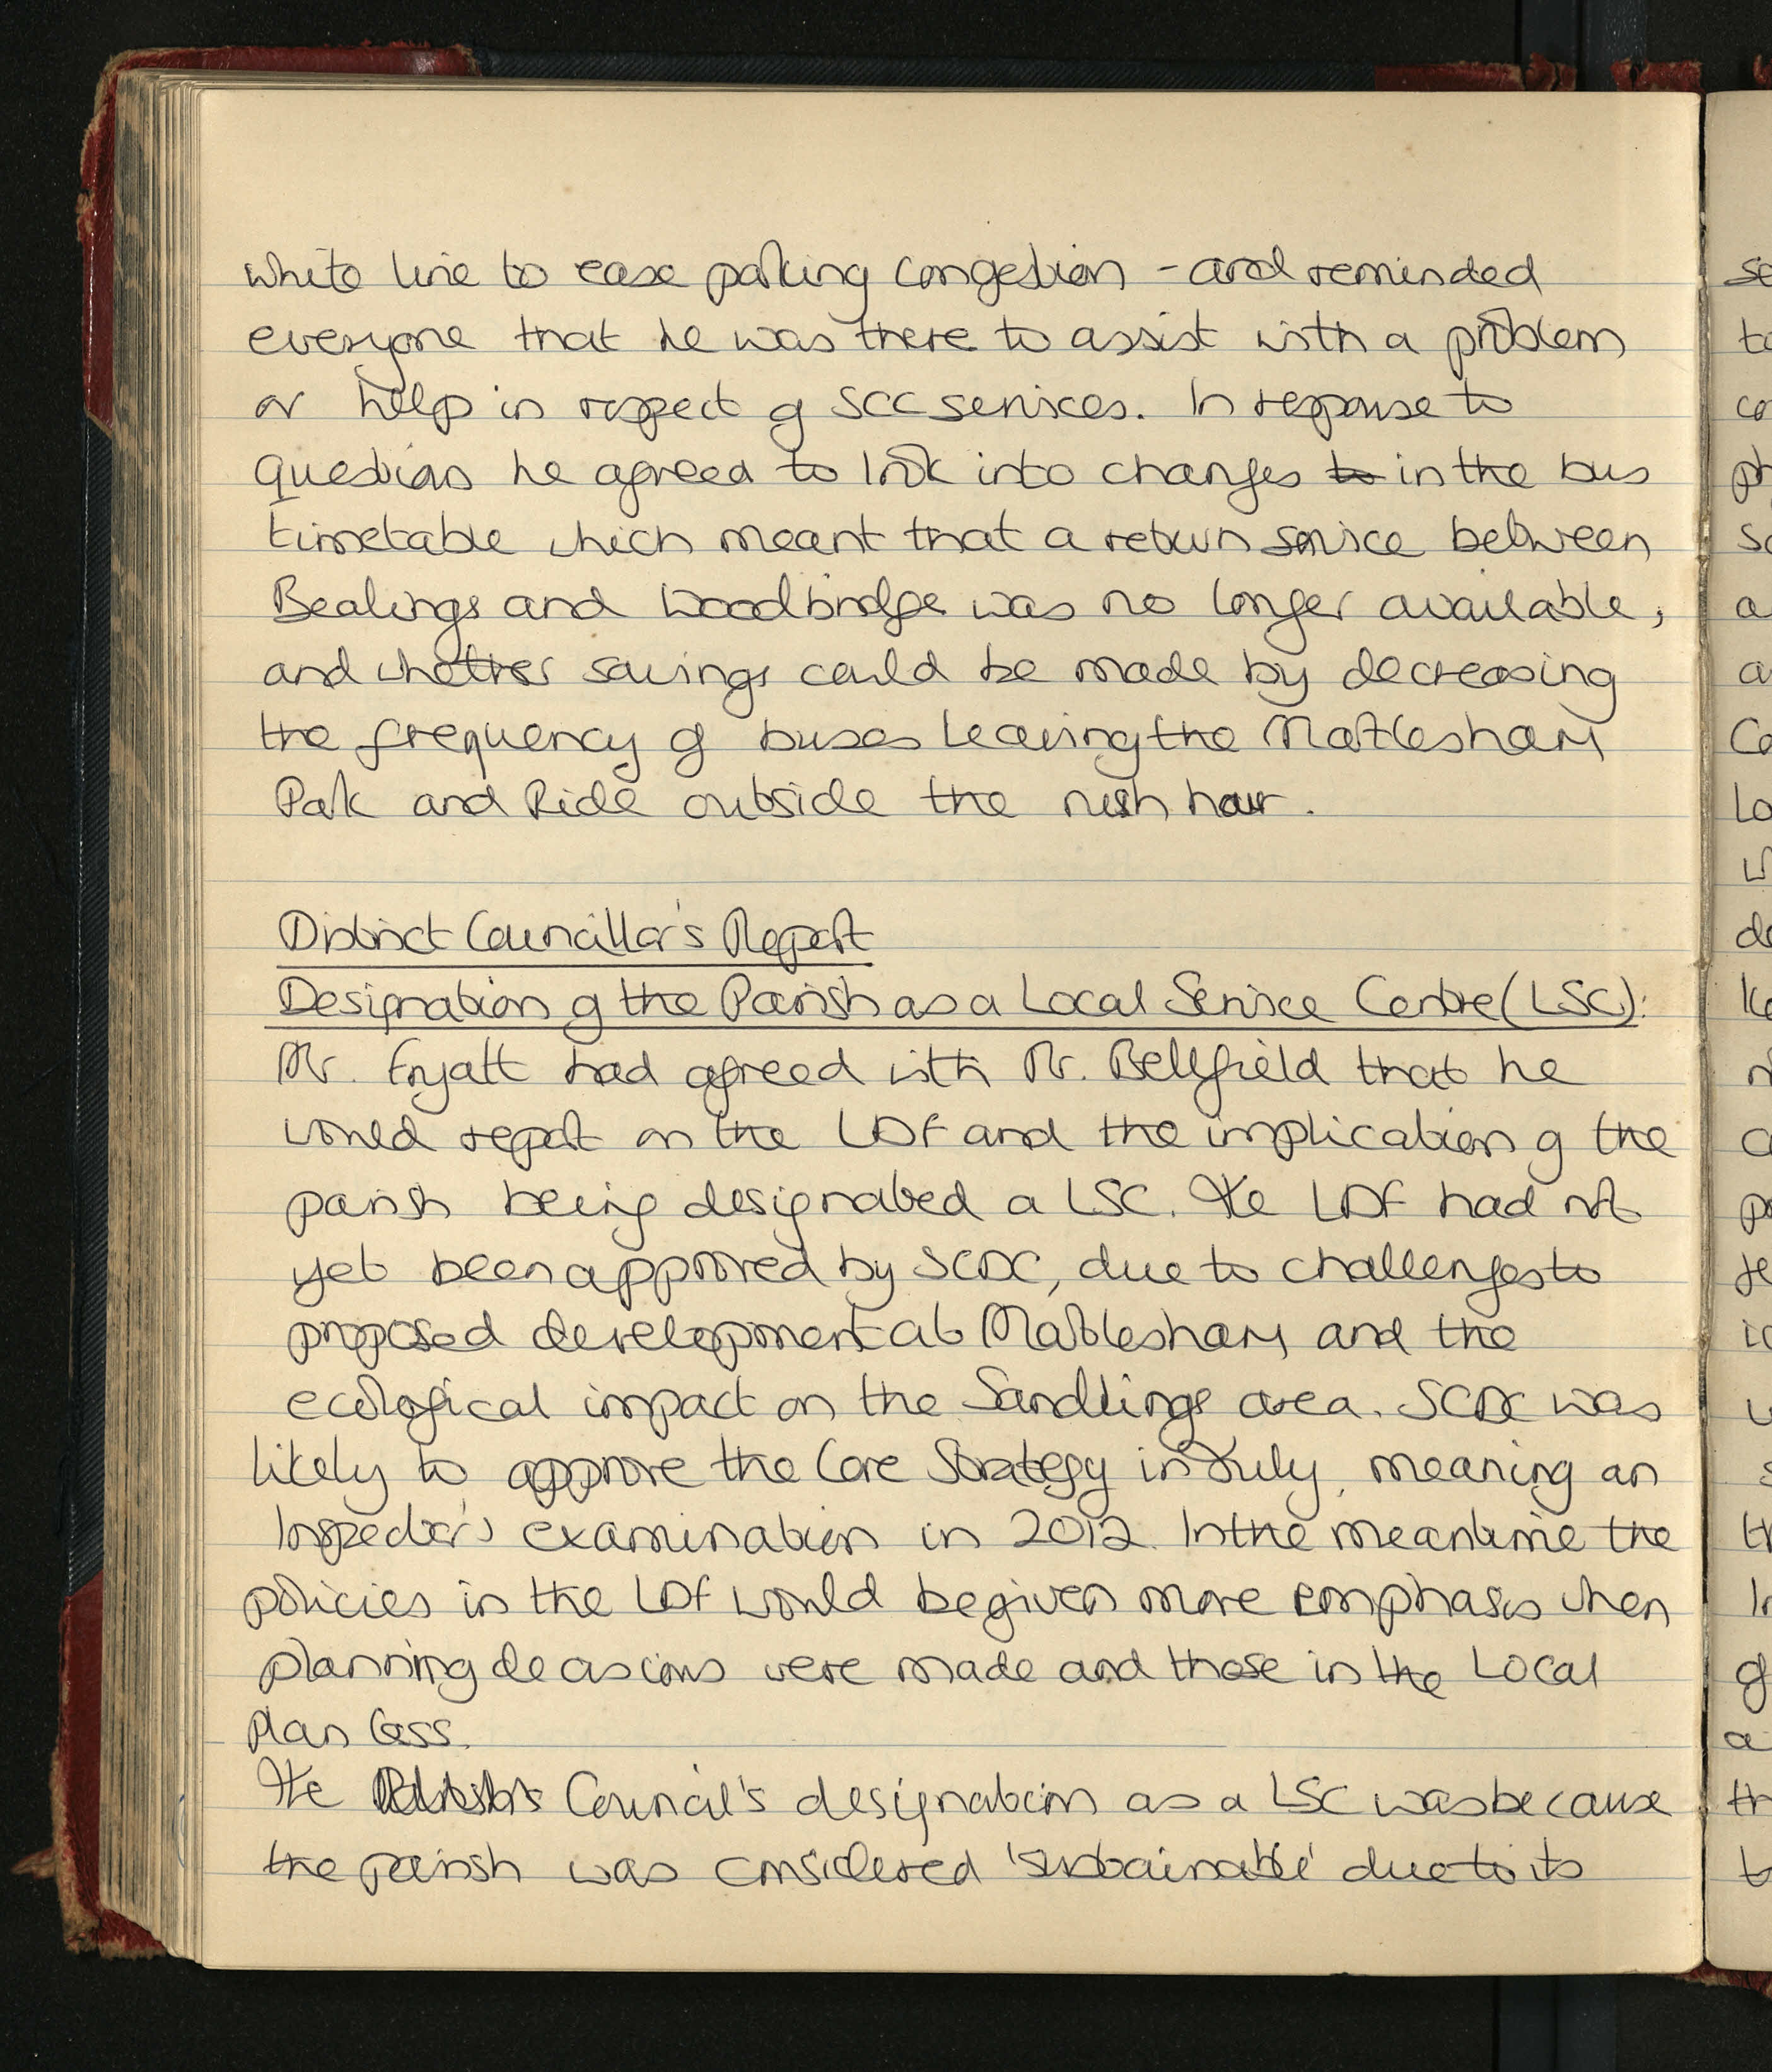 white line to ease parking congestion - and reminded
everyone that he was there to assist with a problem
or help in respect of SCC services. In response to
questions he agreed to look into changes to in the bus
timetable which meant that a return service between
Bealings and Woodbridge was no longer available,
and whether savings could be made by decreasing
the frequency of buses leaving the Martlesham
Park and Ride outside the rush hour.
District Councillor's Report
Designation of the Parish as a Local Service Centre (LSC):
Mr. Fryatt had agreed with Mr. Bellfield that he
would report on the LDF and the implication of the
parish being designated a LSC. The LDF had not
yet been approved by SCDC, due to challenges to
proposed development at Martlesham and the
ecological impact on the Sandlings area. SCDC was
likely to approve the Core Strategy in July, meaning an
Inspector's examination in 2012. In the meantime the
policies in the LDF would be given more emphasis when
planning decisions were made and those in the Local
Plan less.
The Council's designation as a LSC was because
the parish was considered 'sustainable' due to its